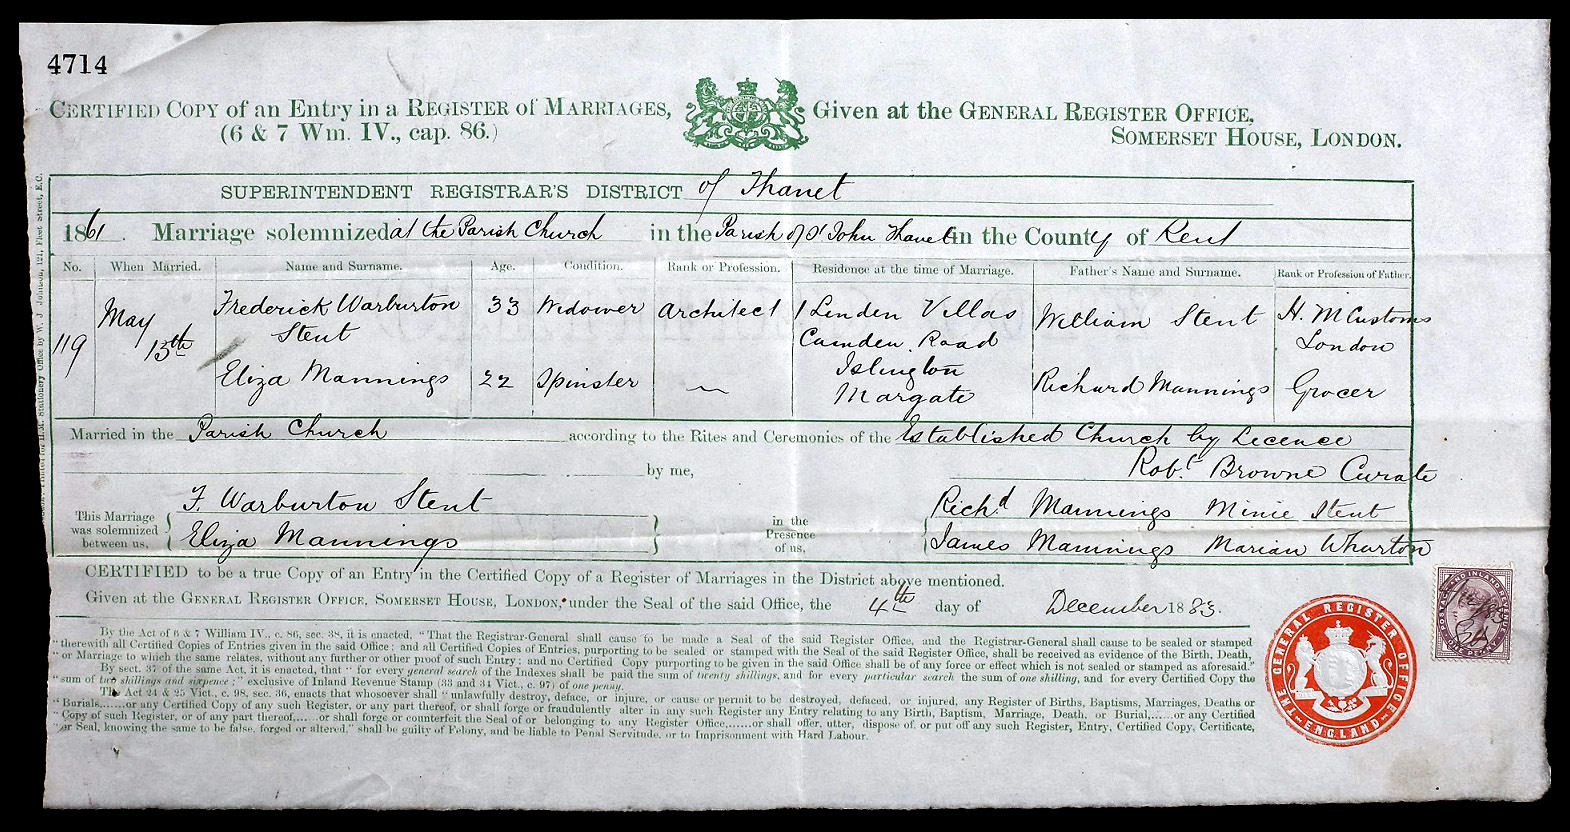 4714
CERTIFIED COPY of an Entry in a REGISTER of MARRIAGES, Given at the GENERAL REGISTER OFFICE,
(6 & 7 Wm. IV., cap. 86.) SOMERSET HOUSE, LONDON.
SUPERINTENDENT REGISTRAR'S DISTRICT of Thanet
1861. Marriage solemnized at the Parish Church in the Parish of St John Thanet in the County of Kent
No. When Married. Name and Surname. Age. Condition. Rank or Profession. Residence at the time of Marriage. Father's Name and Surname. Rank or Profession of Father.
119 May 15th Frederick Warburton Stent 33 Widower Architect 1 Linden Villas Camden Road Islington William Stent H. M Customs London
Eliza Mannings 22 Spinster — Margate Richard Mannings Grocer
Married in the Parish Church according to the Rites and Ceremonies of the Established Church by Licence
by me, Robt Browne Curate
This Marriage was solemnized between us, F. Warburton Stent Eliza Mannings in the Presence of us, Richd Mannings Minie Stent James Mannings Marian Wharton
CERTIFIED to be a true Copy of an Entry in the Certified Copy of a Register of Marriages in the District above mentioned.
Given at the GENERAL REGISTER OFFICE, SOMERSET HOUSE, LONDON, under the Seal of the said Office, the 4th day of December 1883.
By the Act of 6 & 7 William IV., c. 86, sec. 38, it is enacted, "That the Registrar-General shall cause to be made a Seal of the said Register Office, and the Registrar-General shall cause to be sealed or stamped
"therewith all Certified Copies of Entries given in the said Office; and all Certified Copies of Entries, purporting to be sealed or stamped with the Seal of the said Register Office, shall be received as evidence of the Birth, Death,
"or Marriage to which the same relates, without any further or other proof of such Entry; and no Certified Copy purporting to be given in the said Office shall be of any force or effect which is not sealed or stamped as aforesaid."
By sect. 37 of the same Act, it is enacted, that "for every general search of the Indexes shall be paid the sum of twenty shillings, and for every particular search the sum of one shilling, and for every Certified Copy the
"sum of two shillings and sixpence;" exclusive of Inland Revenue Stamp (33 and 34 Vict., c. 97) of one penny.
The Act 24 & 25 Vict., c. 98, sec. 36, enacts that whosoever shall "unlawfully destroy, deface, or injure, or cause or permit to be destroyed, defaced, or injured, any Register of Births, Baptisms, Marriages, Deaths or
"Burials,......or any Certified Copy of any such Register, or any part thereof, or shall forge or fraudulently alter in any such Register any Entry relating to any Birth, Baptism, Marriage, Death, or Burial,......or any Certified
"Copy of such Register, or of any part thereof,......or shall forge or counterfeit the Seal of or belonging to any Register Office,......or shall offer, utter, dispose of, or put off any such Register, Entry, Certified Copy, Certificate,
"or Seal, knowing the same to be false, forged or altered," shall be guilty of Felony, and be liable to Penal Servitude, or to Imprisonment with Hard Labour.
THE GENERAL REGISTER OFFICE ENGLAND
POSTAGE AND INLAND REVENUE
ONE PENNY